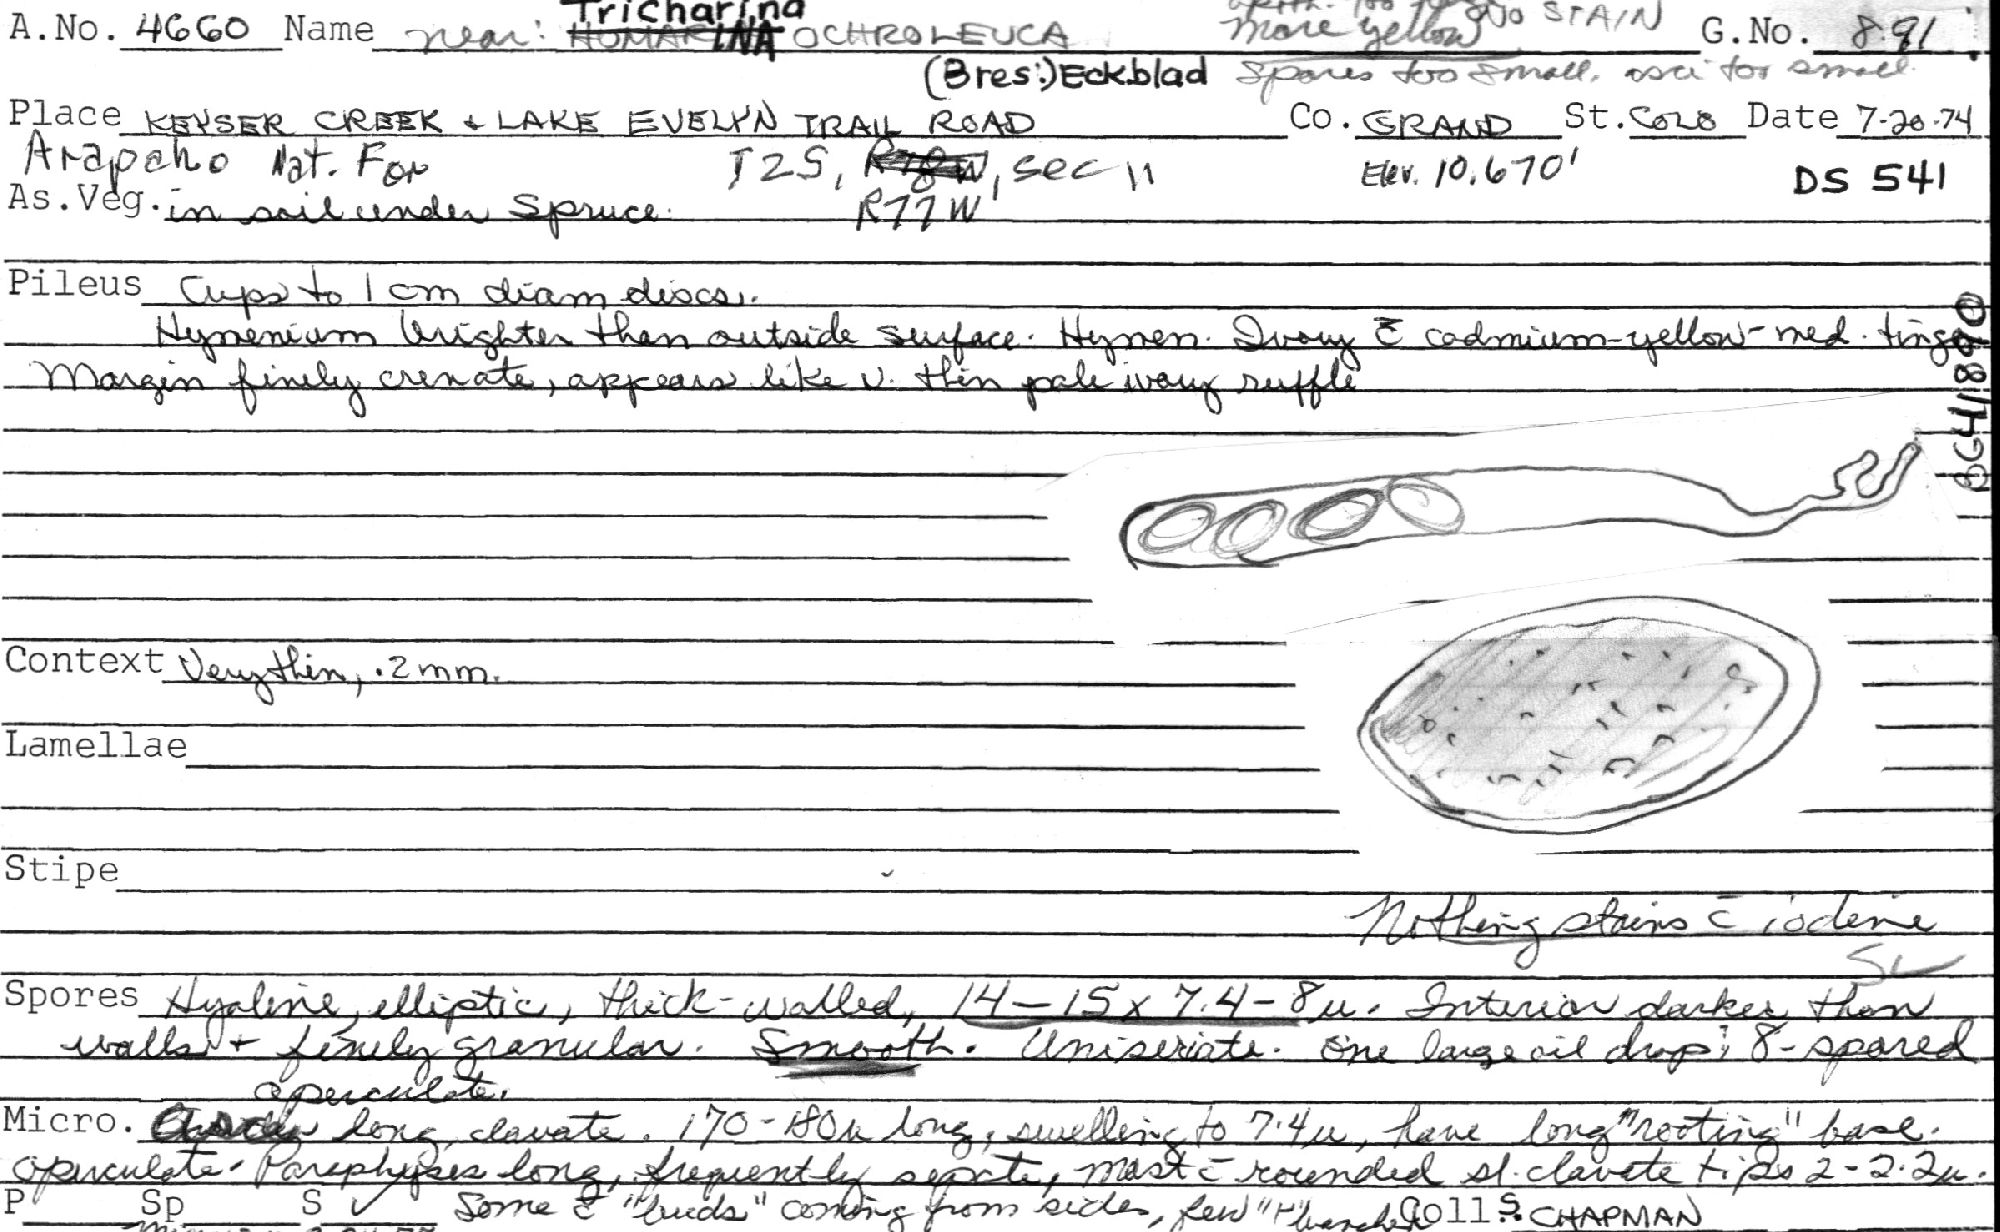 Tricharina
A.No. 4660 Name near: HUMARINA OCHROLEUCA more yellow NO STAIN G.No. 891
(Bres.) Eckblad Spores too small. asci too small.
Place KEYSER CREEK + LAKE EVELYN TRAIL ROAD Co. GRAND St. COLO Date 7-20-74
Arapaho Nat. For T2S, R78W, sec 11 Elev. 10,670' DS 541
As.Veg. in soil under spruce. R77W
Pileus Cups to 1 cm diam discs.
Hymenium brighter than outside surface. Hymen. Ivory c̄ cadmium-yellow-med. tinge
Margin finely crenate, appears like v. thin pale ivory ruffle
DG 41890
Context Very thin, .2 mm.
Lamellae
Stipe
Nothing stains c̄ iodine
Spores Hyaline, elliptic, thick-walled, 14-15 x 7.4-8u. Interior darker than
walls + finely granular. Smooth. Uniseriate. One large oil drop; 8-spored
operculate.
Micro. long, clavate. 170-180u long, swelling to 7.4u, have long "rooting" base.
operculate. Paraphyses long, frequently septate, most c̄ rounded sl. clavate tips 2-2.2u.
P Sp S ✓ Some c̄ "buds" coming from sides, few "H" branched Coll. S. CHAPMAN